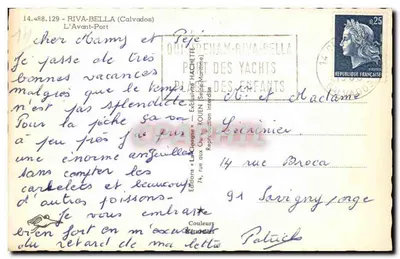 14.488.129 - RIVA-BELLA (Calvados)
L'Avant-Port
cher Mamy et Pépé
Je passe de très
bonnes vacances
malgrés que le temps
n'est pas splendide
Pour la pêche ça va
à peu près j'ai pris
une énorme anguille
sans compter les
carrelets et beaucoup
d'autres poissons.
Je vous embrasse
bien fort en m'excusant
du retard de ma lettre
Patrick
OUISTREHAM-RIVA-BELLA
PORT DES YACHTS
DES ENFANTS
0,25
REPUBLIQUE FRANÇAISE
Mr et Madame
14 rue Broca
91 Savigny/orge
74, rue aux ROUEN (Seine-Maritime)
Reproduction interdite
Couleurs